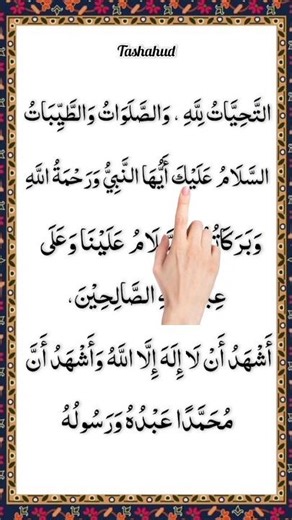 Tashahud
التَّحِيَّاتُ لِلَّهِ ، وَالصَّلَوَاتُ وَالطَّيِّبَاتُ
السَّلَامُ عَلَيْكَ أَيُّهَا النَّبِيُّ وَرَحْمَةُ اللَّهِ
عَلَيْنَا وَعَلَى
الصَّالِحِيْنَ ،
أَشْهَدُ أَنْ لَا إِلَهَ إِلَّا اللَّهُ وَأَشْهَدُ أَنَّ
مُحَمَّدًا عَبْدُهُ وَرَسُولُهُ